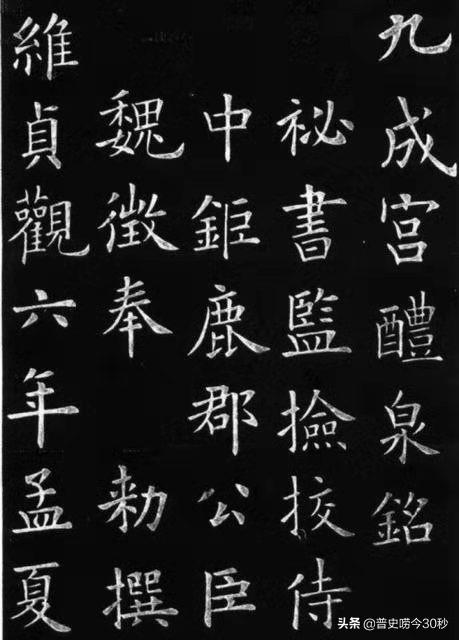 九成宮醴泉銘
祕書監撿挍侍
中鉅鹿郡公臣
魏徵奉 勑撰
維貞觀六年孟夏
头条 @普史唠今30秒